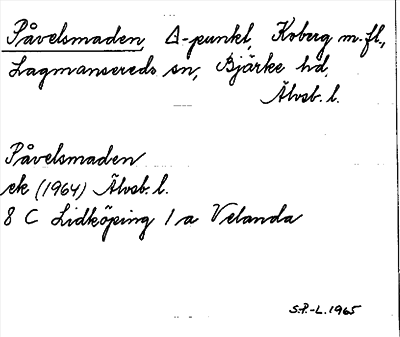 Påvelsmaden, Δ-punkt, Koberg m.fl.,
Lagmansereds sn, Bjärke hd,
Älvsb. l.
Påvelsmaden
ek (1964) Älvsb. l.
8 C Lidköping 1 a Velanda
S.P.-L. 1965